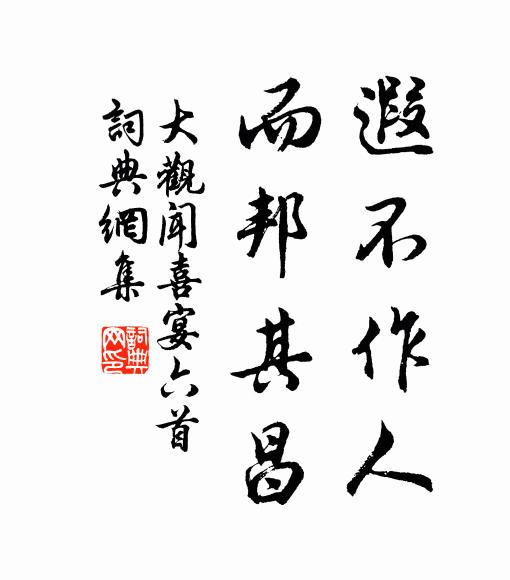 遐不作人
而邦其昌
大觀闻喜宴六首
詞典網集
詞典网印